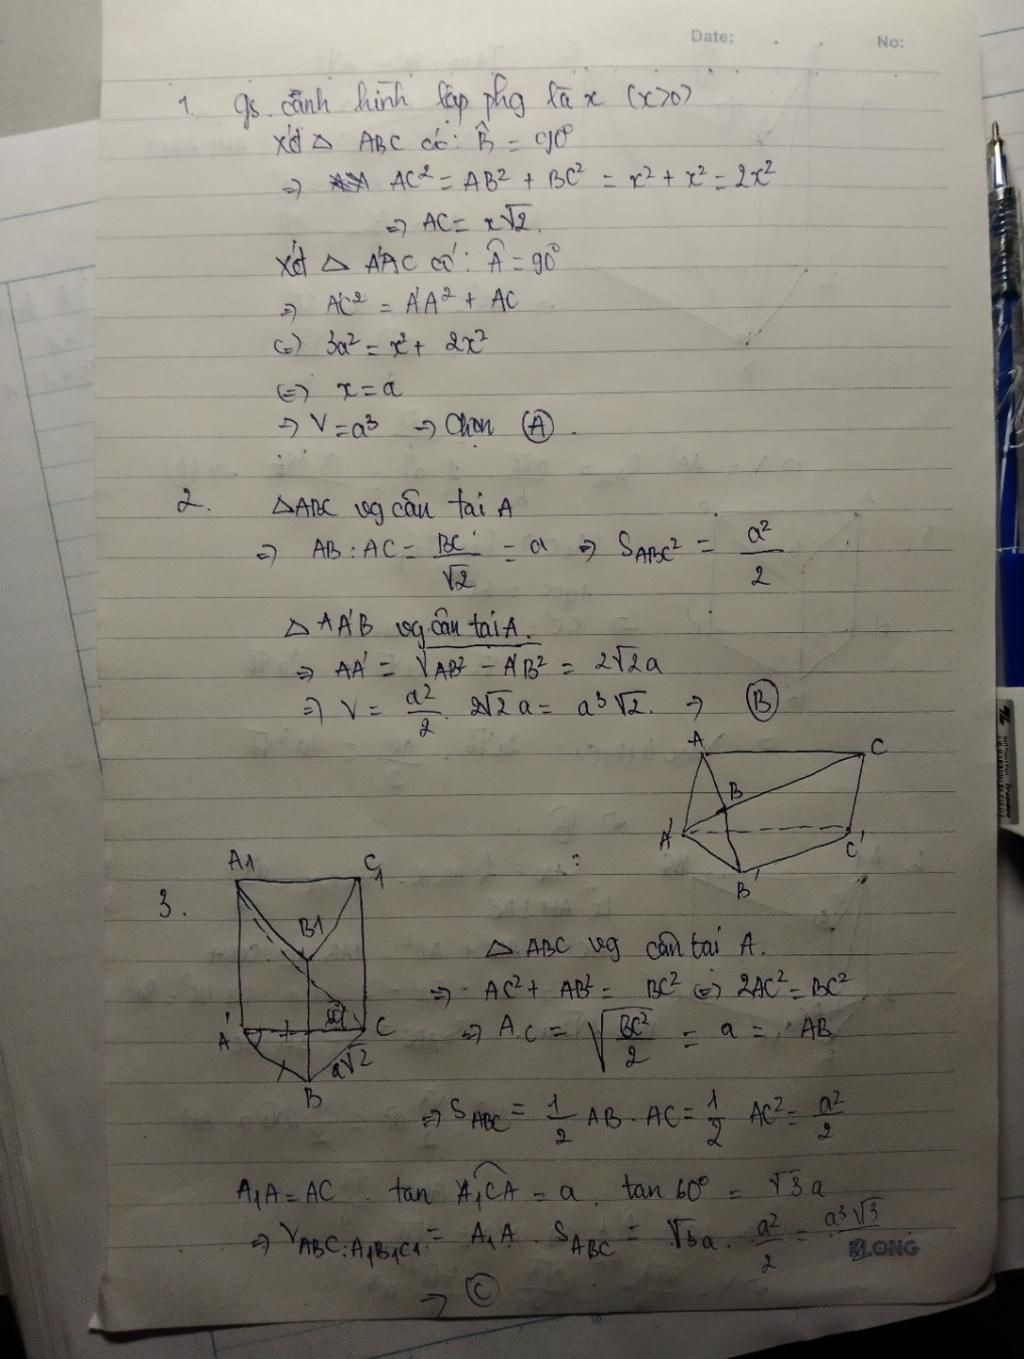 Date:
No:
1. gs. cạnh hình lập phg là x (x>0)
Xét △ ABC có: B̂ = 90°
⇒ AC² = AB² + BC² = x² + x² = 2x²
⇒ AC = x√2.
Xét △ A'AC có: Â = 90°
⇒ A'C² = A'A² + AC
(=) 3a² = x² + 2x²
(=) x = a
⇒ V = a³ ⇒ Chọn Ⓐ.
2. △ABC vg cân tại A
⇒ AB : AC = BC/√2 = a ⇒ S_ABC² = a²/2
△ AA'B vg cân tại A.
⇒ AA' = √(AB² - A'B²) = 2√2a
⇒ V = a²/2 . 2√2a = a³√2. ⇒ Ⓑ
A C
B
A' C'
B'
3.
A1 C1
B1
A' C
a√2
B
△ ABC vg cân tại A.
⇒ AC² + AB² = BC² (=) 2AC² = BC²
⇒ AC = √(BC²/2) = a = AB
⇒ S_ABC = 1/2 AB . AC = 1/2 AC² = a²/2
A₁A = AC . tan A₁CA = a . tan 60° = √3a
⇒ V_ABC.A₁B₁C₁ = A₁A . S_ABC = √3a . a²/2 = a³√3/2
KLONG
⇒ Ⓒ